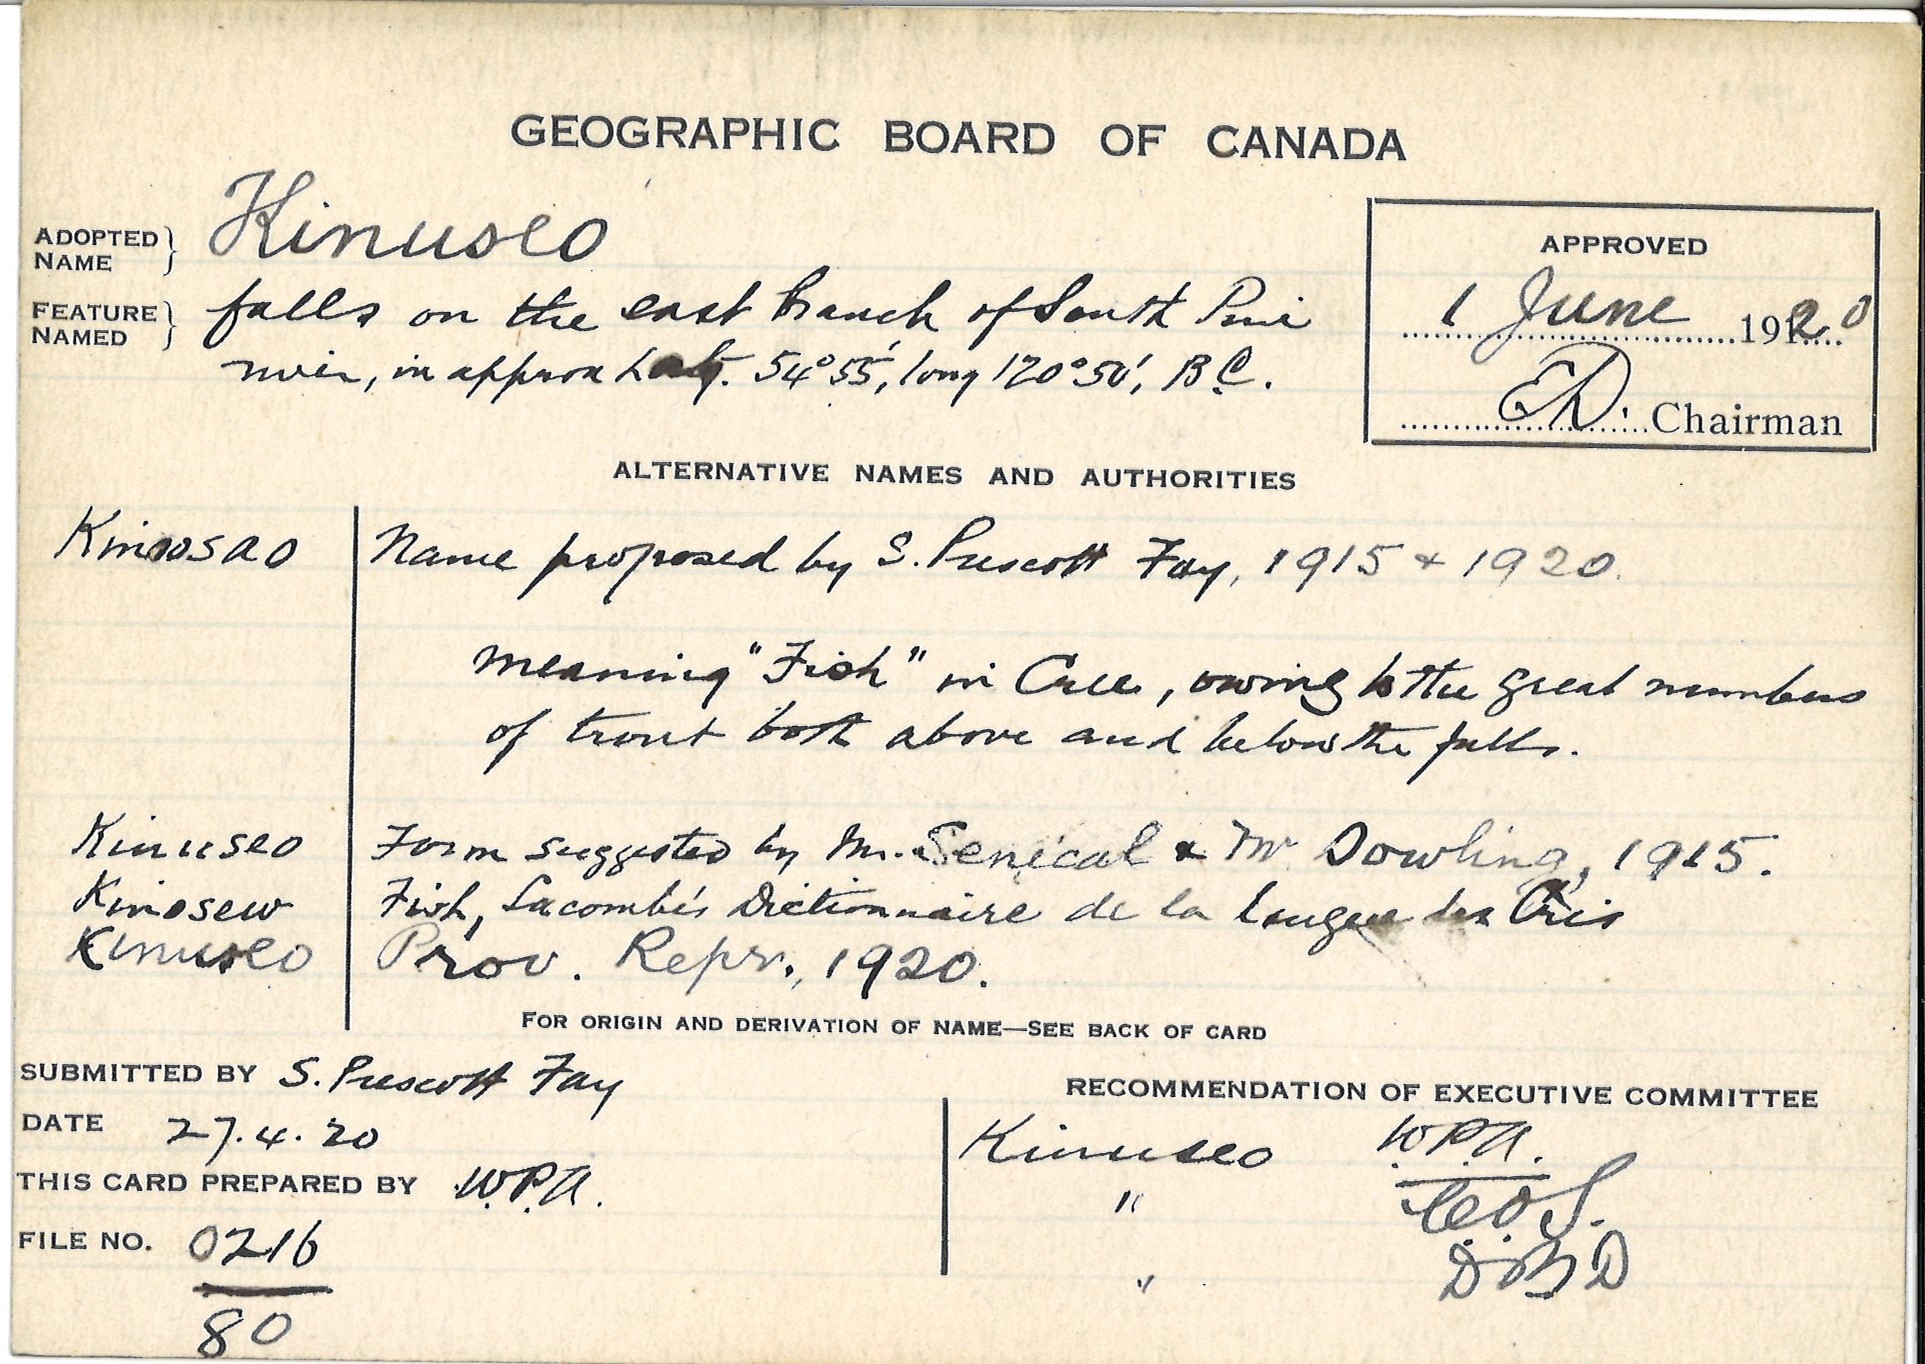 GEOGRAPHIC BOARD OF CANADA
ADOPTED NAME } Kinuseo
FEATURE NAMED } falls on the east branch of South Pine
river, in approx Lat. 54°55', long 120°50', B.C.
APPROVED
1 June 1920
E.D. Chairman
ALTERNATIVE NAMES AND AUTHORITIES
Kinosao Name proposed by S. Prescott Fay, 1915 & 1920.
meaning "Fish" in Cree, owing to the great numbers
of trout both above and below the falls.
Kinuseo Form suggested by Mr. Senecal & Mr Dowling, 1915.
Kinosew Fish, Lacombe's Dictionnaire de la langue des Cris
Kinuseo Prov. Repr., 1920.
FOR ORIGIN AND DERIVATION OF NAME—SEE BACK OF CARD
SUBMITTED BY S. Prescott Fay
DATE 27.4.20
THIS CARD PREPARED BY W.P.A.
FILE NO. 0216
80
RECOMMENDATION OF EXECUTIVE COMMITTEE
Kinuseo W.P.A.
" C.O.S.
" D.B.D